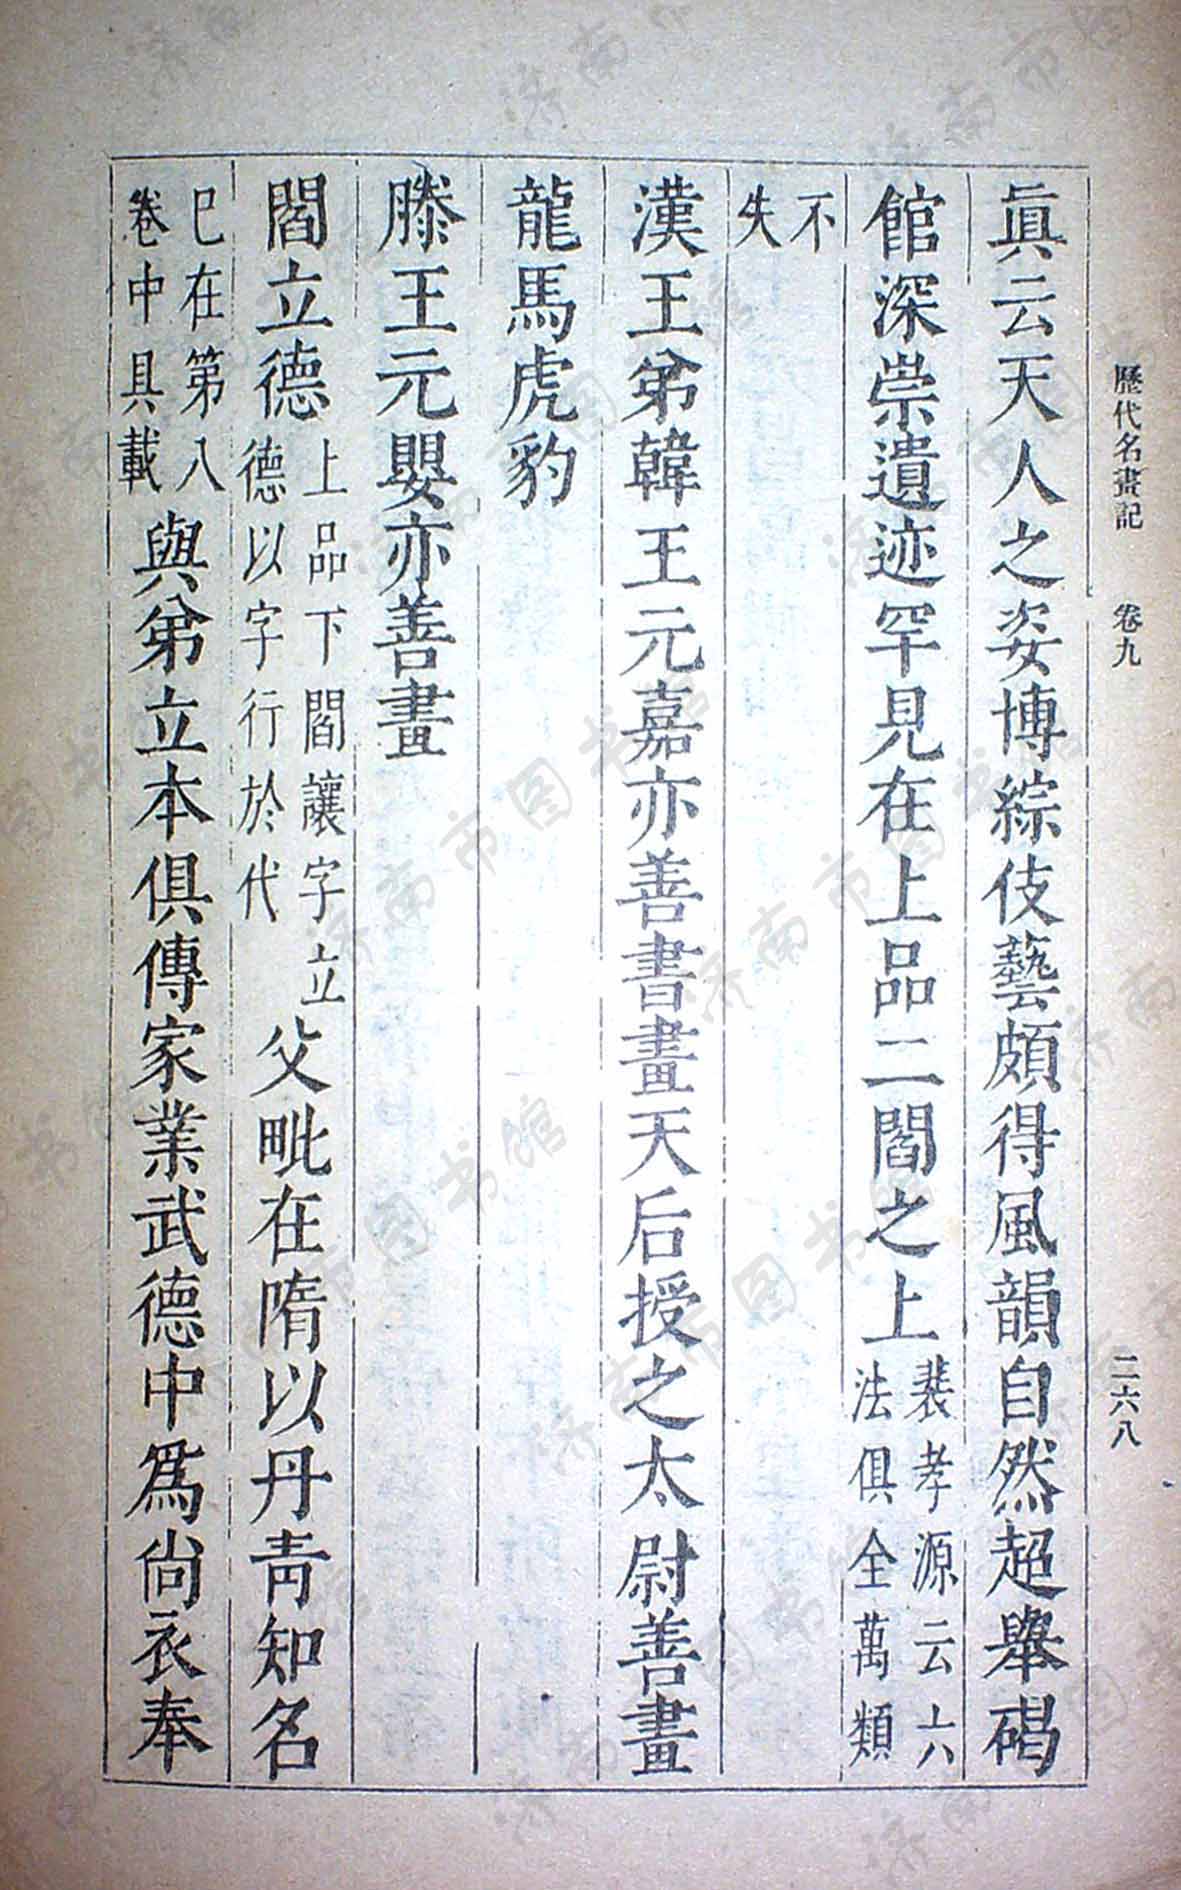 歷代名畫記 卷九 二六八
眞云天人之姿博綜伎藝頗得風韻自然超舉碣
館深崇遺迹罕見在上品二閻之上裴孝源云六法俱全萬類
不失
漢王弟韓王元嘉亦善書畫天后授之太尉善畫
龍馬虎豹
滕王元嬰亦善畫
閻立德上品下閻讓字立德以字行於代父毗在隋以丹青知名
巳在第八卷中具載與弟立本俱傳家業武德中爲尙衣奉
济南市图书馆